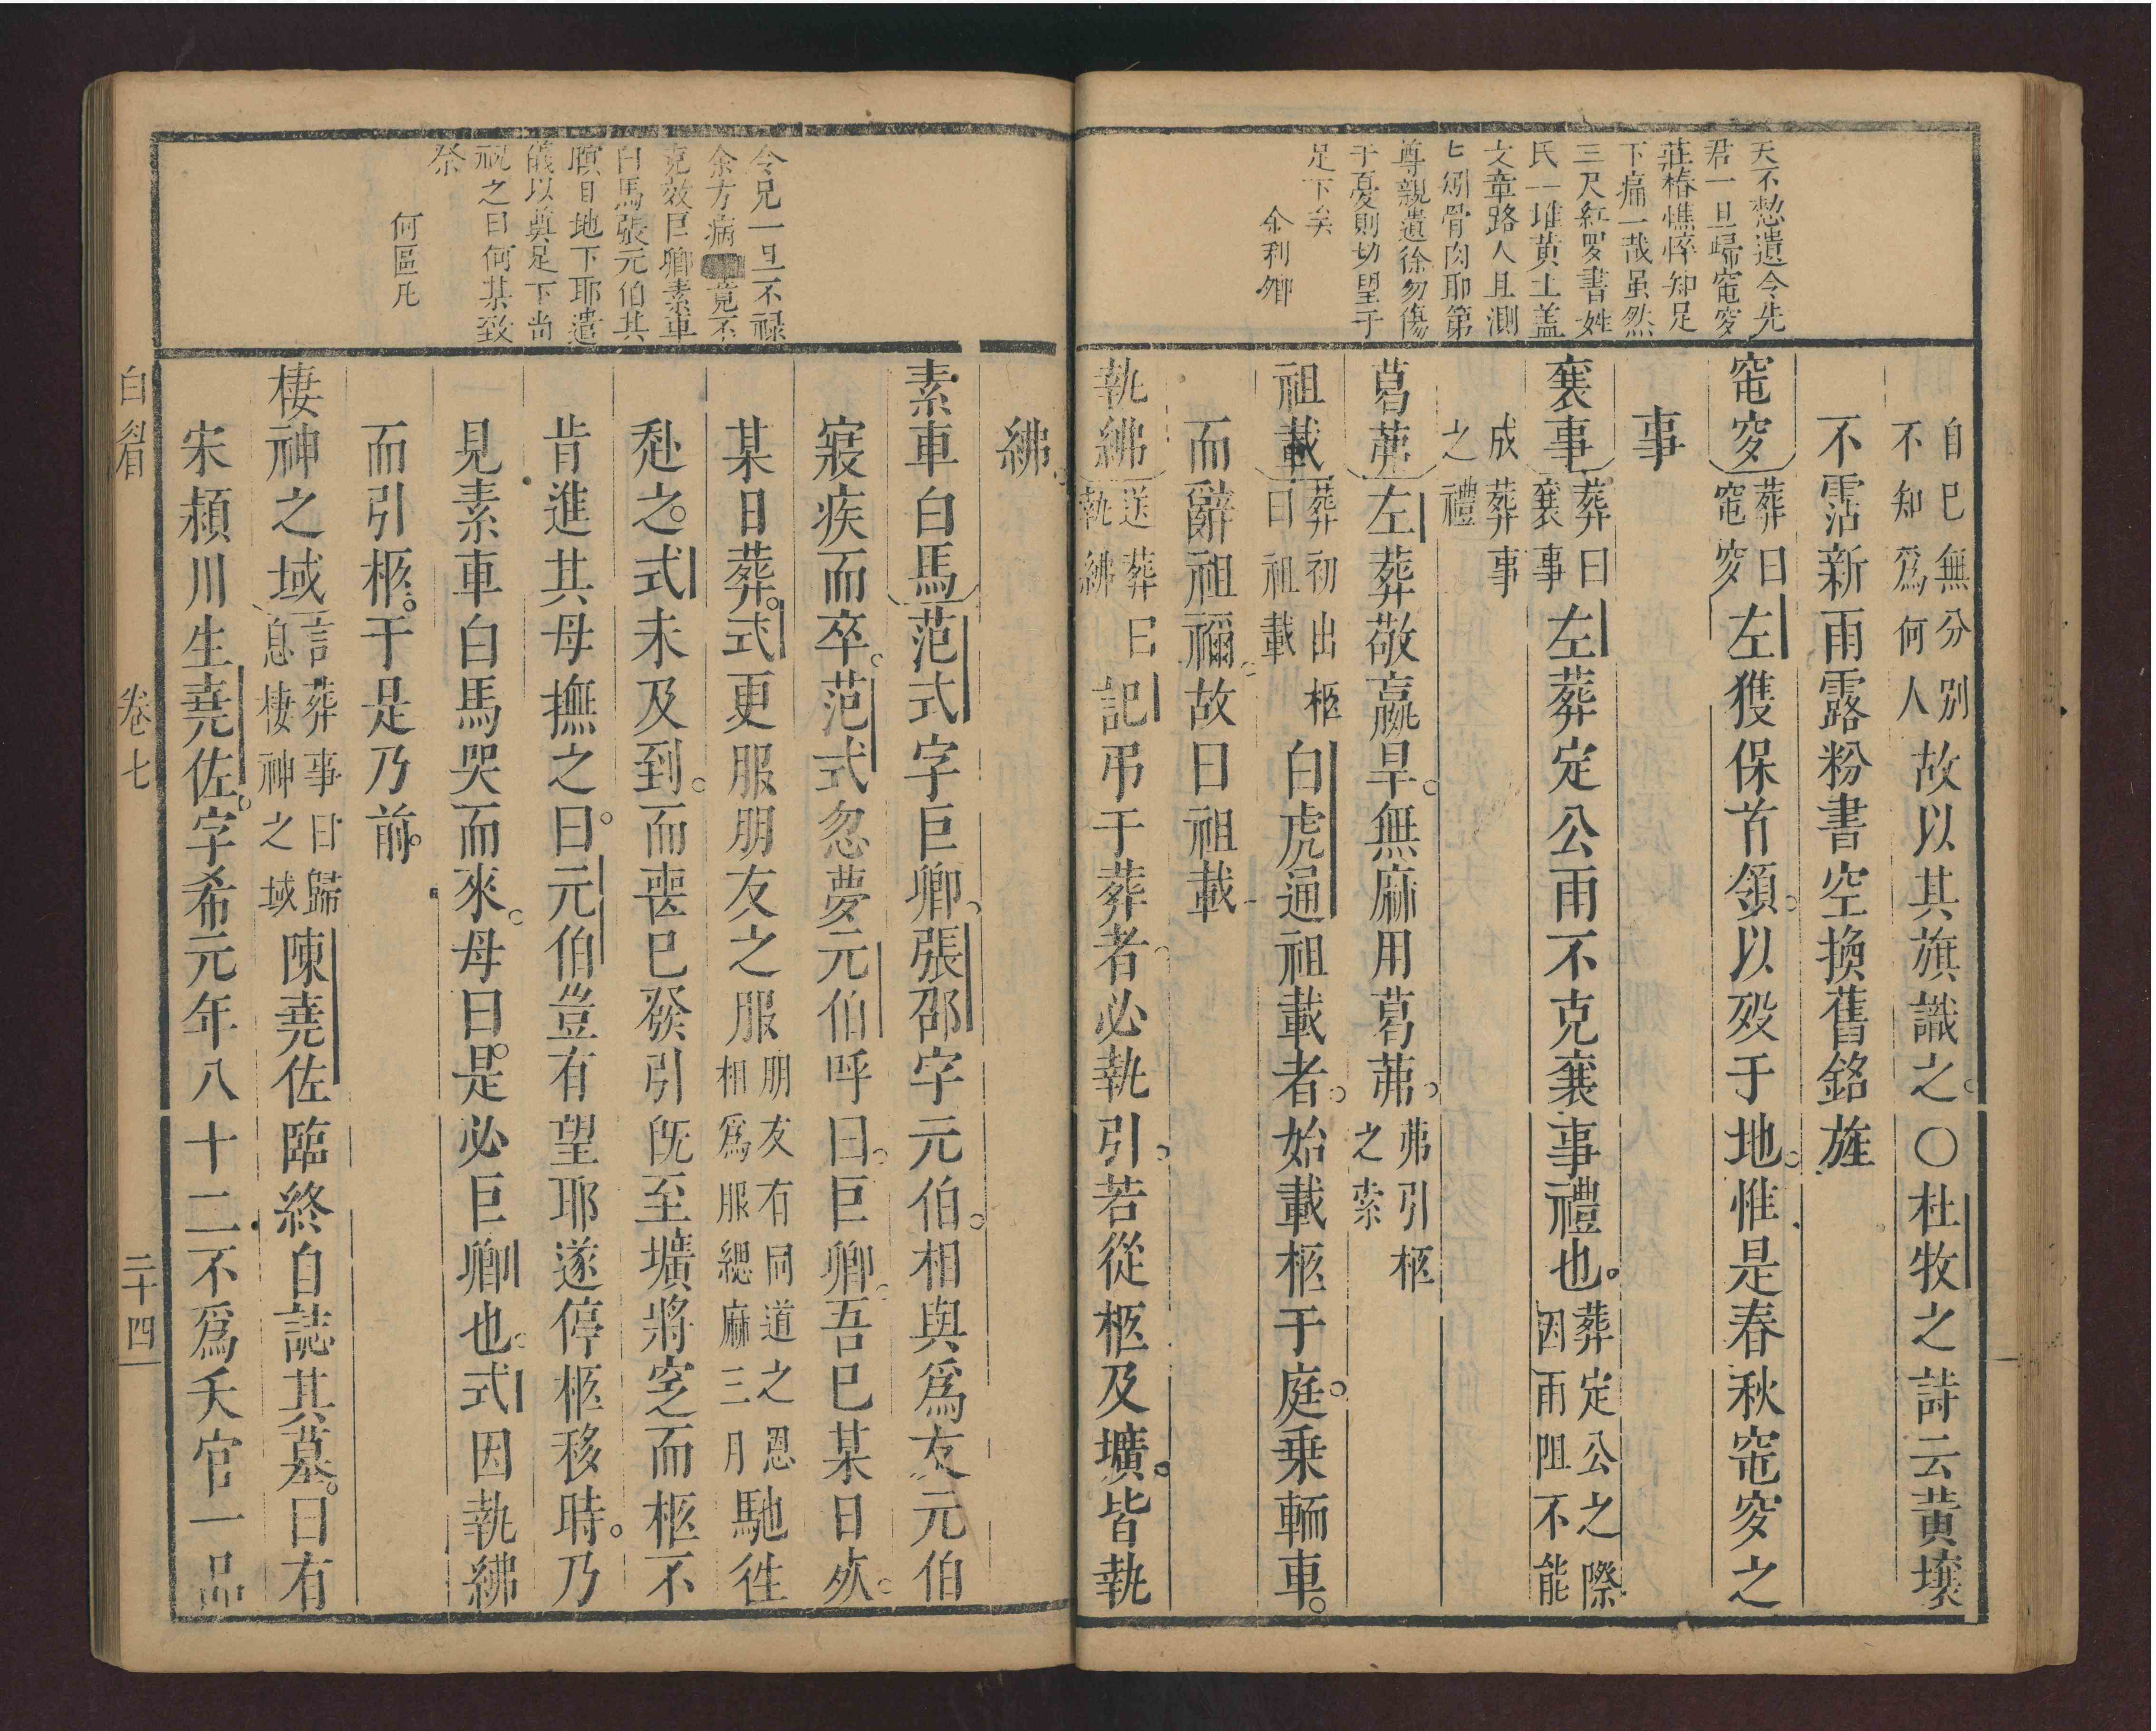 天不憗遺令先
君一旦歸窀穸
莊椿憔悴知足
下痛一哉雖然
三尺紅罗書姓
氏一堆黃土盖
文章路人且測
匕矧骨肉耶第
尊親遺徐勿傷
于憂則切望于
足下矣
余利鄉
自巳無分別
不知爲何人
故以其旗識之○杜牧之詩云黃壤
不霑新雨露粉書空換舊銘旌
窀穸
葬曰
窀穸
左獲保首領以歿于地惟是春秋窀穸之
事
襄事
葬曰
襄事
左葬定公雨不克襄事禮也
葬定公之際
因雨阻不能
成葬事
之禮
葛茀
左葬敬嬴旱無麻用葛茀
茀引柩
之索
祖載
葬初出柩
曰祖載
白虎通祖載者始載柩于庭乗輀車
而辭祖禰故曰祖載
執紼
送葬曰
執紼
記弔于葬者必執引若從柩及壙皆執
令兄一旦不禄
余方病竟不
克效巨卿素車
白馬張元伯其
瞑目地下耶遣
儀以奠足下尚
祝之曰何某致
祭
何區凡
紼
素車白馬
范式字巨卿張邵字元伯相與爲友元伯
寢疾而卒范式忽夢元伯呼曰巨卿吾巳某日死
某日葬式更服朋友之服
朋友有同道之恩
相爲服緦麻三月
馳徃
赴之式未及到而喪巳發引旣至壙將窆而柩不
肯進其母撫之曰元伯豈有望耶遂停柩移時乃
見素車白馬哭而來母曰是必巨卿也式因執紼
而引柩于是乃前
棲神之域
言葬事曰歸
息棲神之域
陳堯佐臨終自誌其墓曰有
宋頴川生堯佐字希元年八十二不爲夭官一品
白眉 卷七 二十四